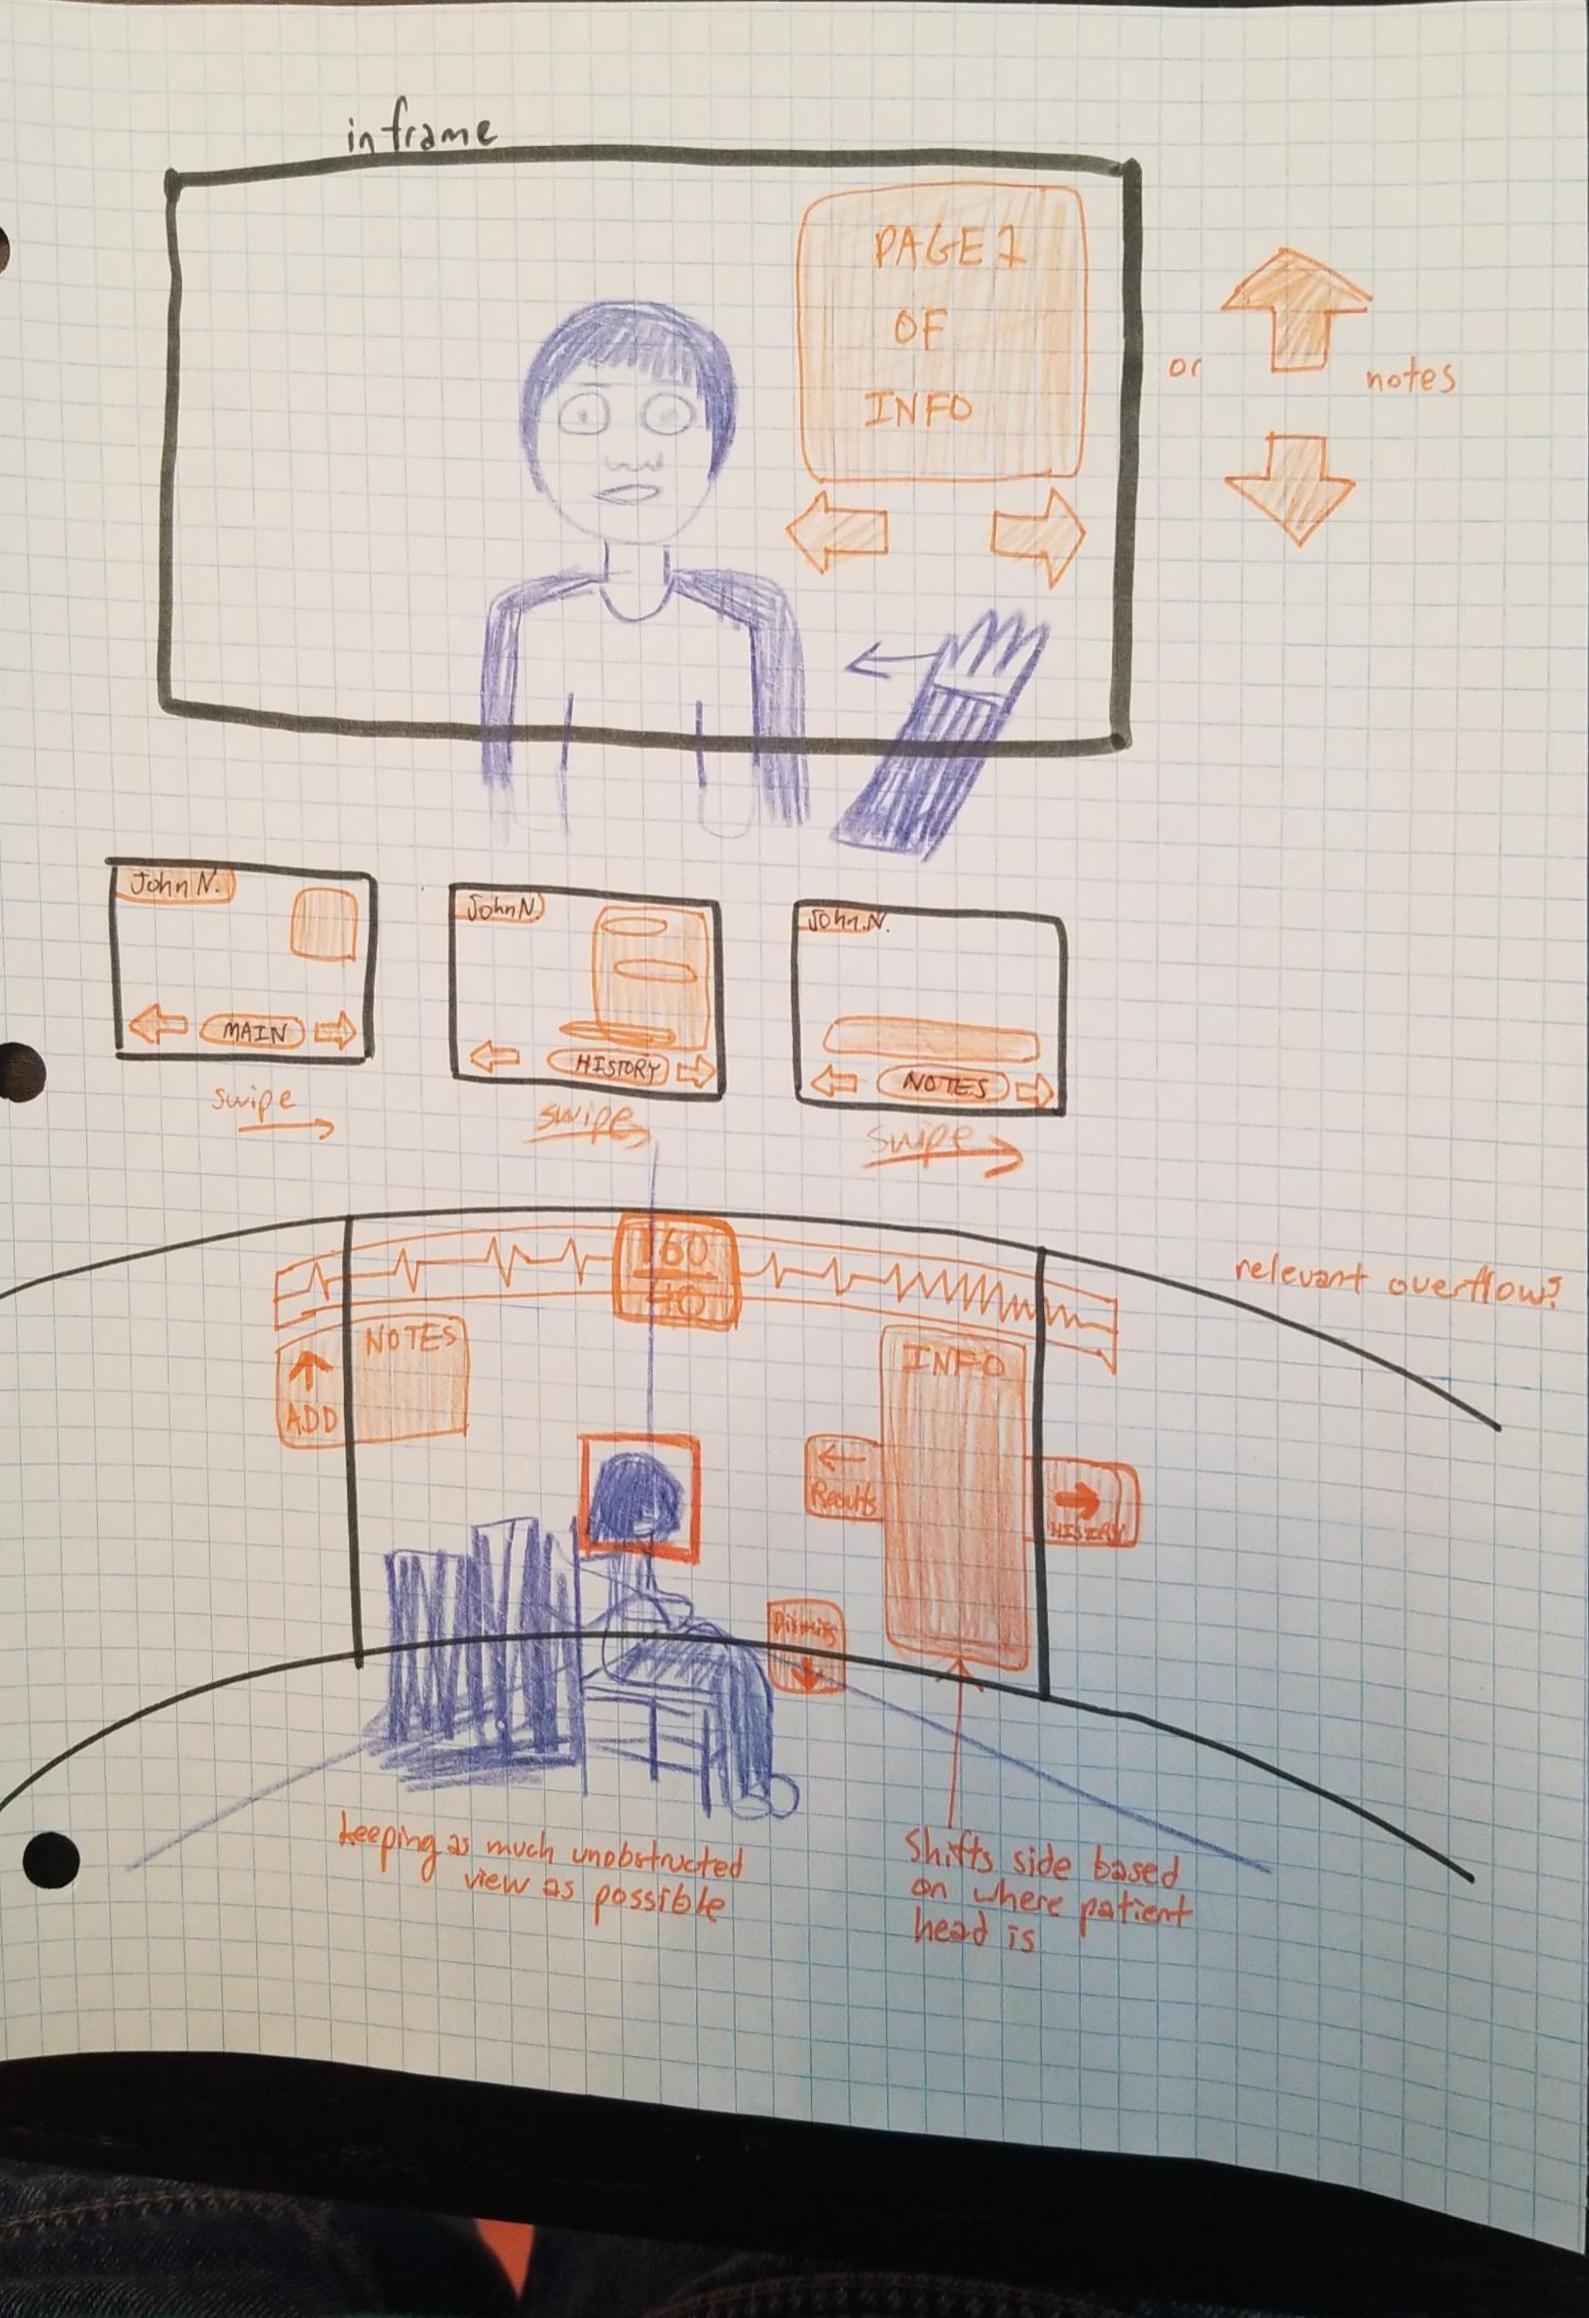 in frame
PAGE 1
OF
INFO
or
notes
John N.
MAIN
swipe
John N.
HISTORY
swipe
John.N.
NOTES
swipe
160
40
relevant overflow?
NOTES
ADD
INFO
Results
HISTORY
Dismiss
keeping as much unobstructed
view as possible
Shifts side based
on where patient
head is